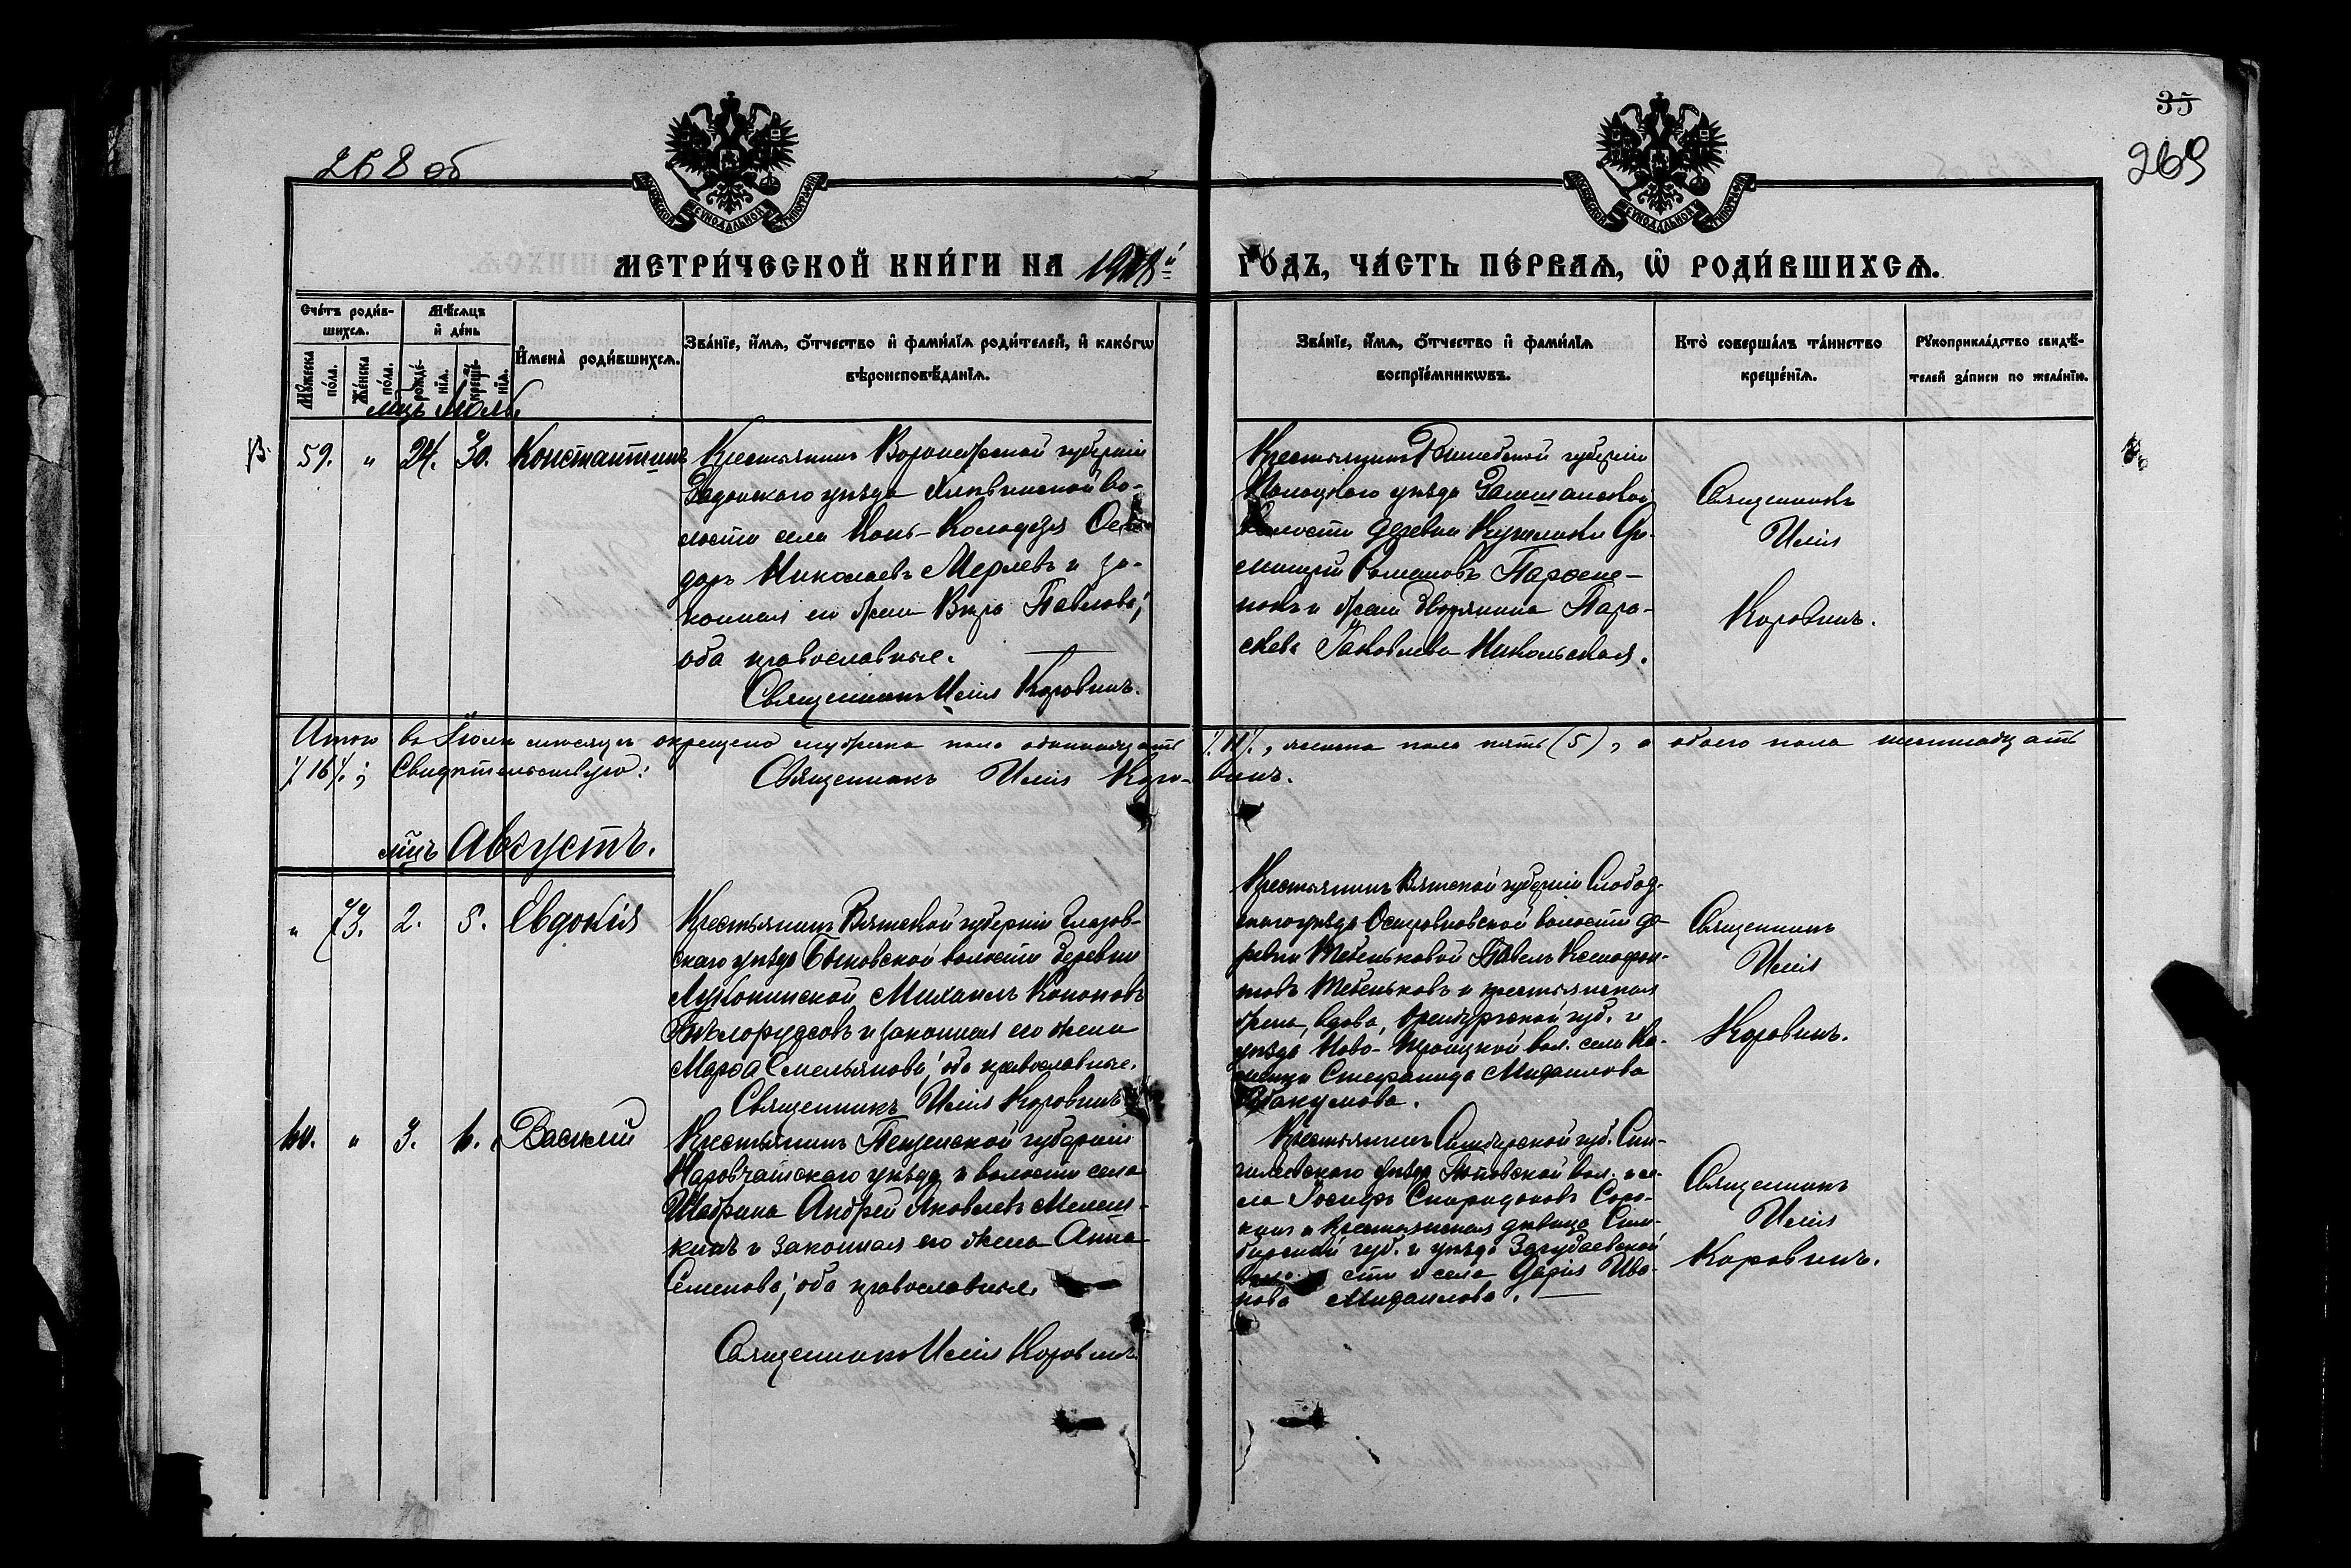 268 об
35
269
МОСКОВСКОЙ СѴНОДАЛЬНОЙ ТИПОГРАФІИ
МОСКОВСКОЙ СѴНОДАЛЬНОЙ ТИПОГРАФІИ
МЕТРИ́ЧЕСКОЙ КНИ́ГИ НА 1908й ГО́ДЪ, ЧА́СТЬ ПЕ́РВАѦ, Ѡ РОДИ́ВШИХСѦ.
Сче́тъ роди́вшихсѧ.
Мꙋ́жеска по́ла.
Же́нска по́ла.
Мѣ́сѧцъ и де́нь
рожде́нїѧ.
креще́нїѧ.
Имена̀ роди́вшихсѧ.
Зва́нїе, и́мѧ, ѻ́тчество и фами́лїѧ роди́телей, и како́гѡ вѣроисповѣ́данїѧ.
Зва́нїе, и́мѧ, ѻ́тчество и фами́лїѧ воспрїе́мникѡвъ.
Кто̀ соверша́лъ та́инство креще́нїѧ.
Рꙋкоприкла́дство свидѣ́телей за́писи по жела́нїю.
мцъ Іюль
59. " 24. 30. Константинъ
Крестьянинъ Воронежской губерніи
Задонскаго уѣзда Хлѣвинской во-
лости села Конь-Колодезя
доръ Николаевъ Мерлевъ и за-
конная его жена Вѣра Павлова,
оба православные.
Священникъ Илія Коровинъ.
Крестьянинъ Витебской губерніи
Полоцкаго уѣзда
волости деревни
Романовъ Парѳене-
нокъ и жена дворянина Пара-
скева Іаковлева Никольская.
Священникъ
Илія
Коровинъ.
Итого въ Іюлѣ мѣсяцѣ окрещено мужеска пола одиннадцать /11/, женска пола пять (5), а обоего пола шестнадцать
/16/; Свидѣтельствую: Священникъ Илія Коровинъ.
мцъ Августъ.
" 73. 2. 5. Евдокія
Крестьянинъ Вятской губерніи Глазов-
скаго уѣзда волости деревни
Михаилъ Кононовъ
и законная его жена
Марѳа Емельянова, оба православные.
Священникъ Илія Коровинъ
Крестьянинъ Вятской губерніи Слобод-
скаго уѣзда волости де-
ревни Тебеньковой Павелъ Ксенофон-
товъ Тебеньковъ и крестьянская
жена, вдова, Оренбургской губ. и
уѣзда Ново-Троицкой вол. села
Стефанида Михаилова
Абакумова.
Священникъ
Илія
Коровинъ.
60. " 3. 6. Василій
Крестьянинъ Пензенской губерніи
Наровчатскаго уѣзда и волости села
Андрей Яковлевъ
и законная его жена Анна
Семенова, оба православные.
Священникъ Илія Коровинъ
Крестьянинъ Симбирской губ. Сен-
гилеевскаго уѣзда вол. и се-
ла Іосифъ Спиридоновъ Соро-
кинъ и крестьянская дѣвица Сим-
бирской губ. и уѣзда
волости и села Дарія Ива-
нова Михаилова.
Священникъ
Илія
Коровинъ.